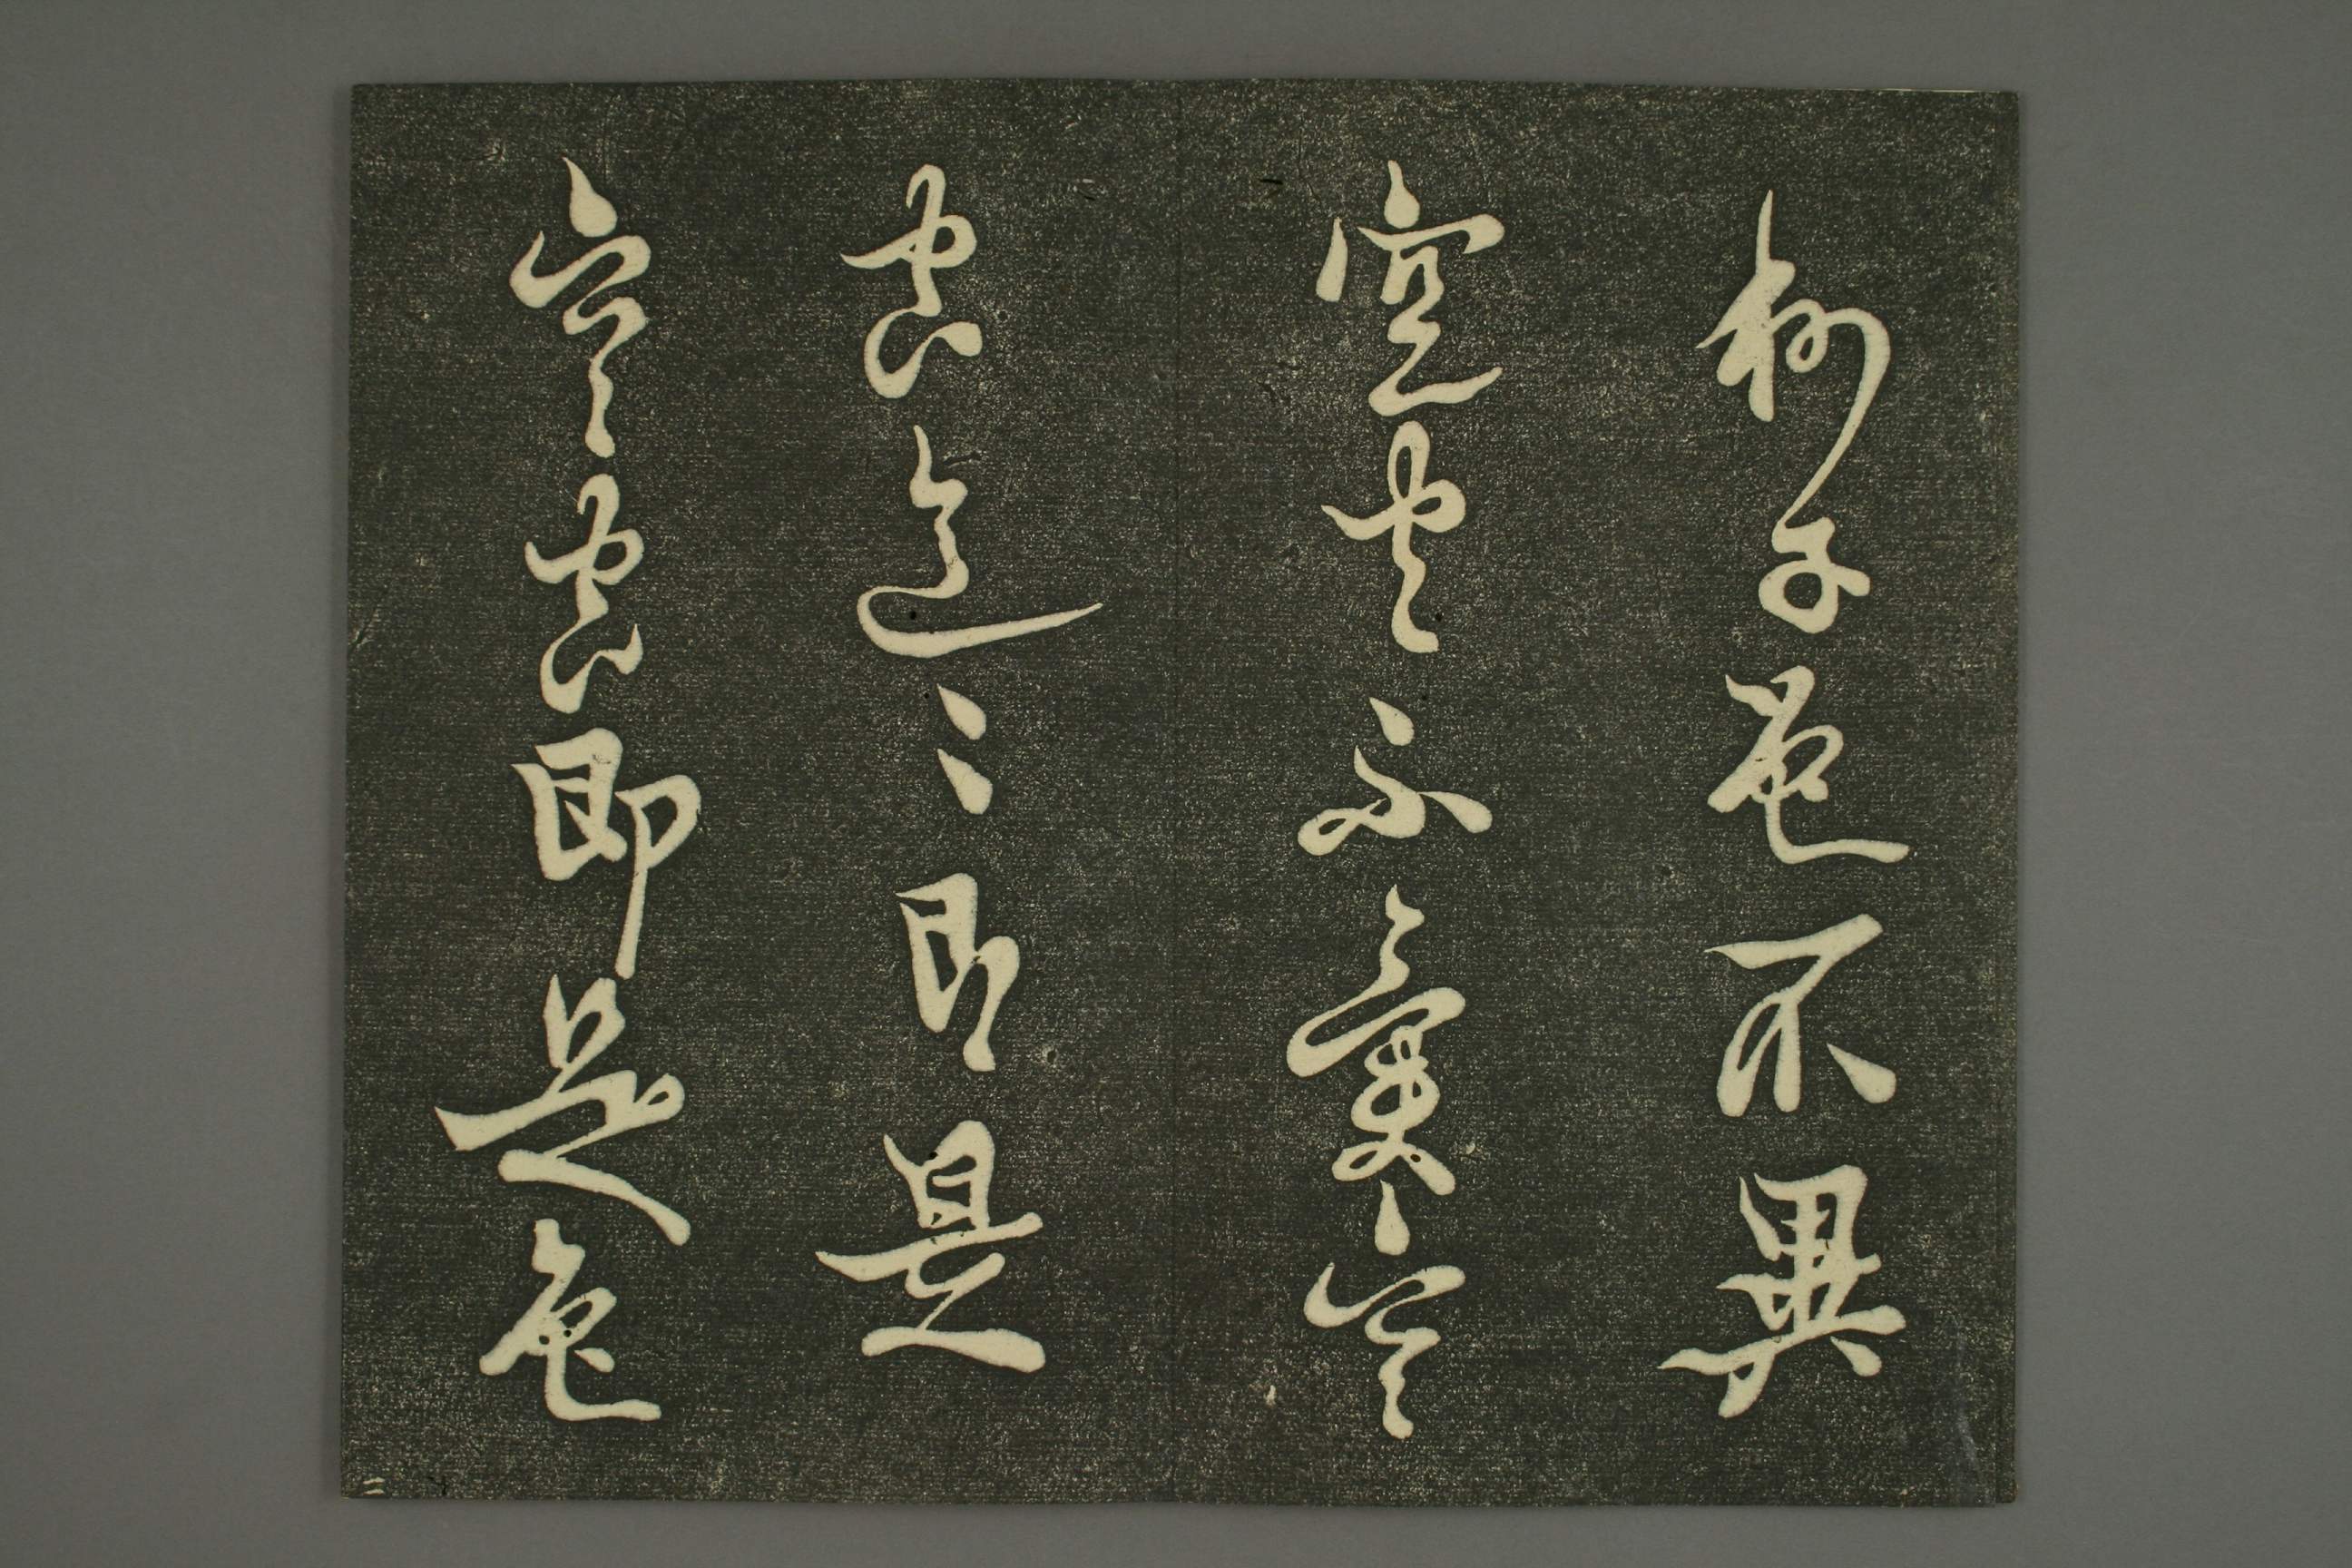 利子色不異
空空不異空
空色〻即是
空空即是色
三